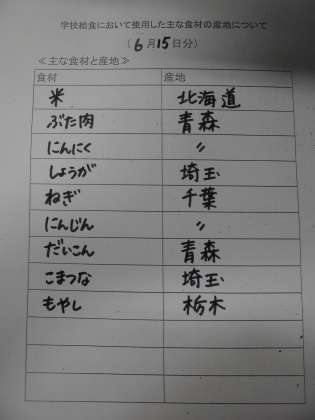 学校給食において使用した主な食材の産地について
(6月15日分)
≪主な食材と産地≫
食材 産地
米 北海道
ぶた肉 青森
にんにく 〃
しょうが 埼玉
ねぎ 千葉
にんじん 〃
だいこん 青森
こまつな 埼玉
もやし 栃木